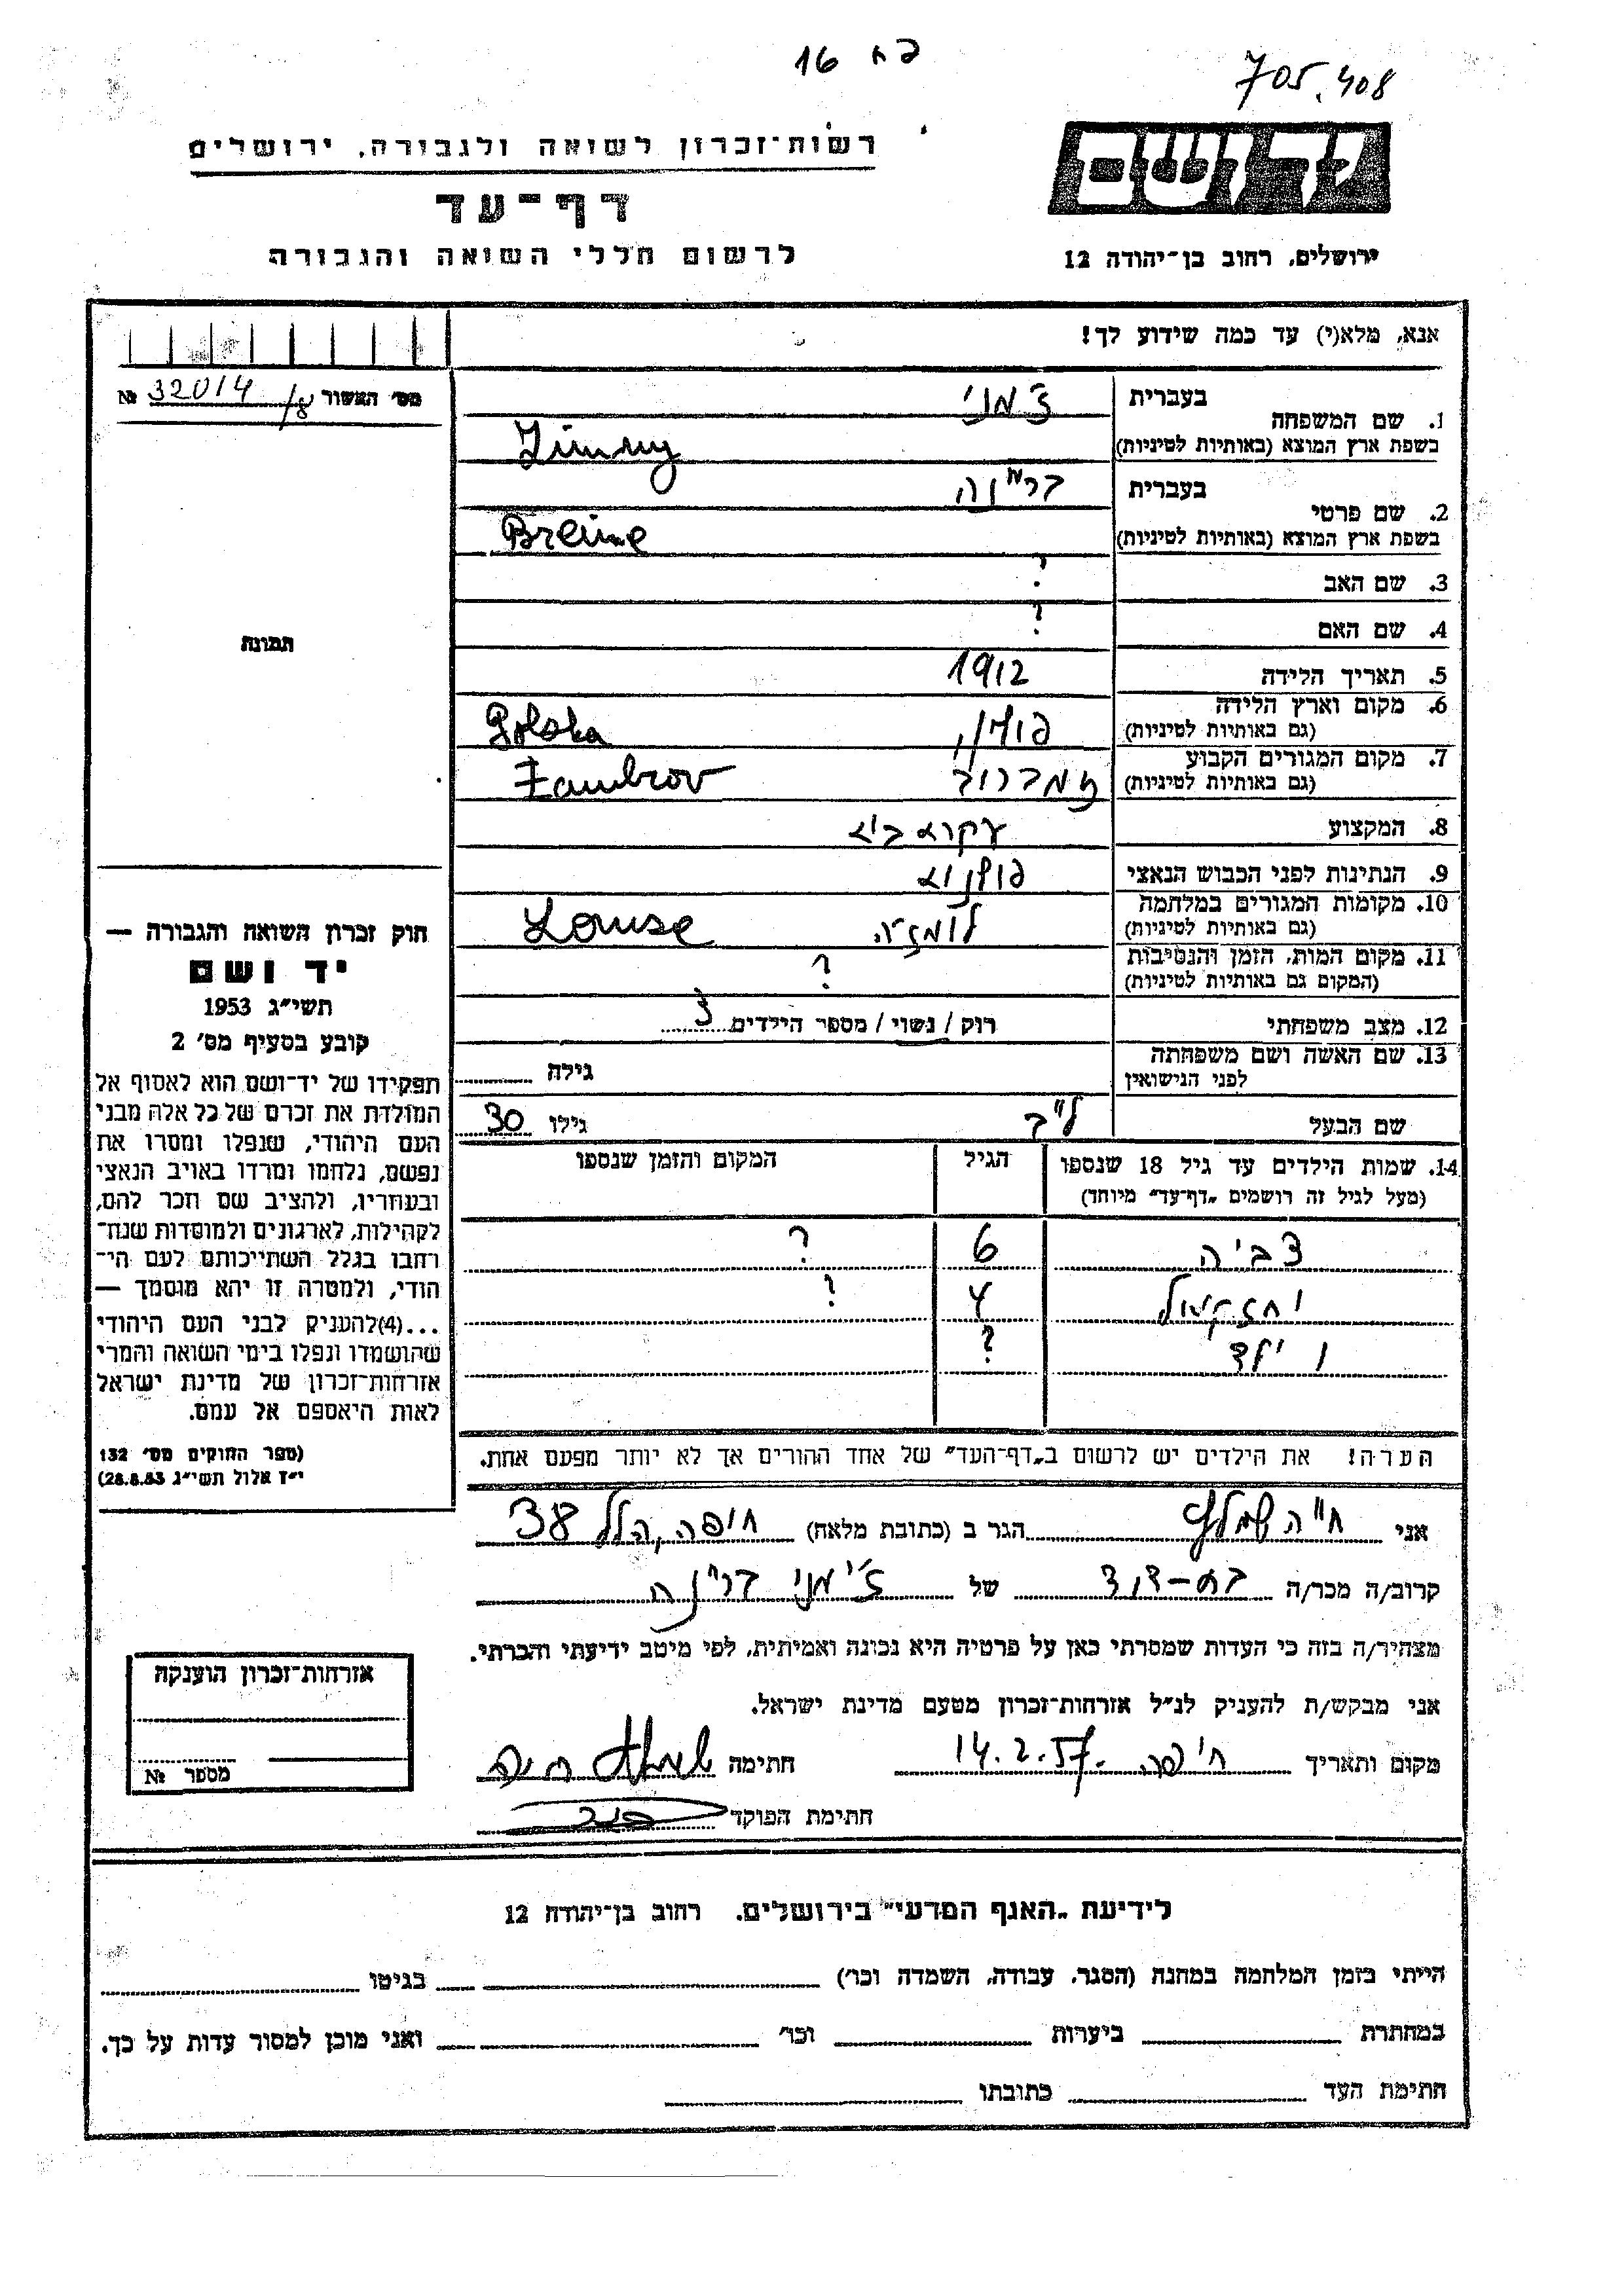 פח 16
705.408
רשות־זכרון לשואה ולגבורה, ירושלים
דף־עד
לרשום חללי השואה והגבורה
יד ושם
ירושלים, רחוב בן־יהודה 12
אנא, מלא(י) עד כמה שידוע לך!
מס׳ האשור 32014/8 №
תמונה
חוק זכרון השואה והגבורה —
יד ושם
תשי״ג 1953
קובע בסעיף מס׳ 2
תפקידו של יד־ושם הוא לאסוף אל
המולדת את זכרם של כל אלה מבני
העם היהודי, שנפלו ומסרו את
נפשם, נלחמו ומרדו באויב הנאצי
ובעוזריו, ולהציב שם וזכר להם,
לקהילות, לארגונים ולמוסדות שנח־
רבו בגלל השתייכותם לעם הי־
הודי, ולמטרה זו יהא מוסמך —
...(4)להעניק לבני העם היהודי
שהושמדו ונפלו בימי השואה והמרי
אזרחות־זכרון של מדינת ישראל
לאות היאספם אל עמם.
(ספר החוקים מס׳ 132
י״ז אלול תשי״ג 28.8.53)
1. שם המשפחה בעברית ז׳מני
בשפת ארץ המוצא (באותיות לטיניות) Zimny
2. שם פרטי בעברית בריינה
בשפת ארץ המוצא (באותיות לטיניות) Breine
3. שם האב ?
4. שם האם ?
5. תאריך הלידה 1912
6. מקום וארץ הלידה (גם באותיות לטיניות) פולין, Polska
7. מקום המגורים הקבוע (גם באותיות לטיניות) זמברוב Zambrov
8. המקצוע עקרת בית
9. הנתינות לפני הכבוש הנאצי פולנית
10. מקומות המגורים במלחמה (גם באותיות לטיניות) לומזה
11. מקום המות, הזמן והנסיבות (המקום גם באותיות לטיניות) ?
12. מצב משפחתי רווק / נשוי / מספר הילדים 3
13. שם האשה ושם משפחתה לפני הנישואין גילה
שם הבעל לייב גילו 30
14. שמות הילדים עד גיל 18 שנספו (מעל לגיל זה רושמים „דף־עד״ מיוחד) הגיל המקום והזמן שנספו
צביה 6 ?
יחזקאל 4 ?
1 ילד ?
הערה! את הילדים יש לרשום ב„דף־העד״ של אחד ההורים אך לא יותר מפעם אחת.
אני חיה הגר ב (כתובת מלאה) חיפה, הלל 38
קרוב/ה מכר/ה בת-דוד של ז׳ימני בריינה
מצהיר/ה בזה כי העדות שמסרתי כאן על פרטיה היא נכונה ואמיתית, לפי מיטב ידיעתי והכרתי.
אני מבקש/ת להעניק לנ״ל אזרחות־זכרון מטעם מדינת ישראל.
מקום ותאריך חיפה 14.2.57. חתימה חיה
חתימת הפוקד
אזרחות־זכרון הוענקה
מספר №
לידיעת „האגף המדעי״ בירושלים. רחוב בן־יהודה 12
הייתי בזמן המלחמה במחנה (הסגר, עבודה, השמדה וכו׳) בגיטו
במחתרת ביערות וכו׳ ואני מוכן למסור עדות על כך.
חתימת העד כתובתו